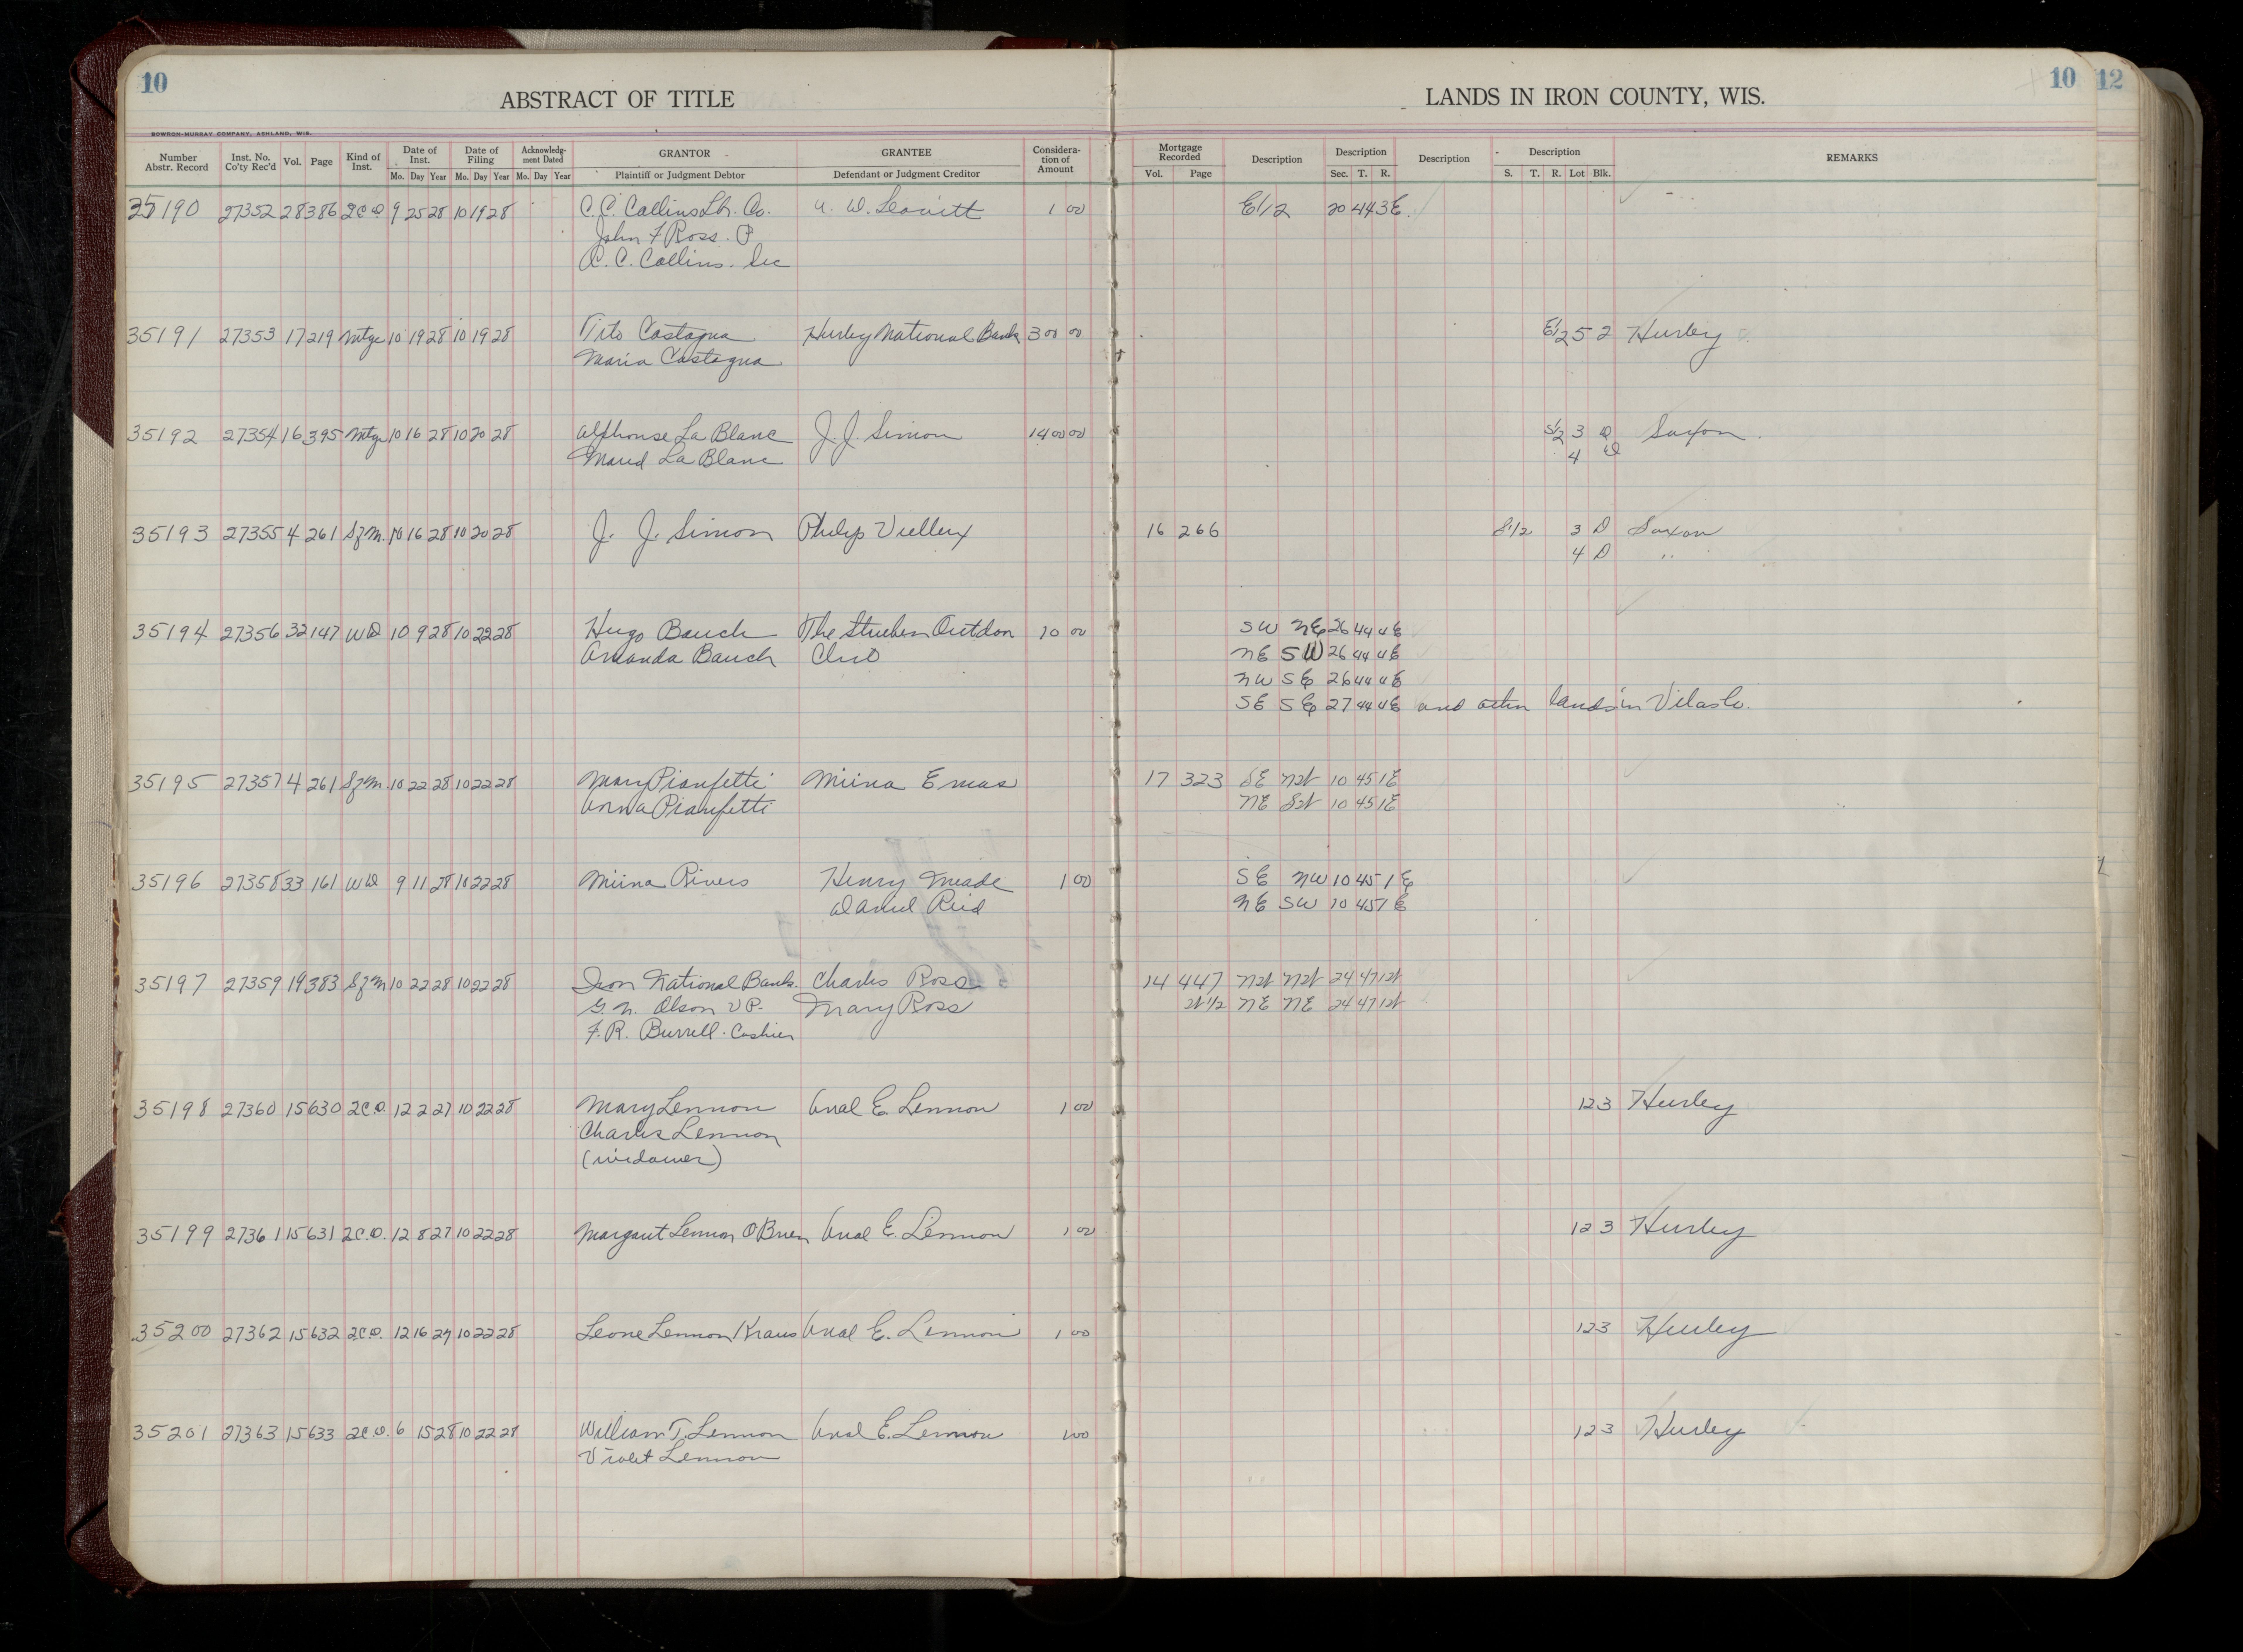 10
ABSTRACT OF TITLE
LANDS IN IRON COUNTY, WIS.
10
12
BOWRON-MURRAY COMPANY, ASHLAND, WIS.
Number Abstr. Record Inst. No. Co'ty Rec'd Vol. Page Kind of Inst. Date of Inst. Mo. Day Year Date of Filing Mo. Day Year Acknowledgment Dated Mo. Day Year GRANTOR Plaintiff or Judgment Debtor GRANTEE Defendant or Judgment Creditor Consideration of Amount Mortgage Recorded Vol. Page Description Description Sec. T. R. Description Description S. T. R. Lot Blk. REMARKS
35190 27352 28 386 2CD 9 25 28 10 19 28 C.C. Collins Lbr. Co. A. W. Leavitt 1 00 E1/2 20 44 3E
John F Ross. P
C. C. Collins. Sec
35191 27353 17 219 Mtge 10 19 28 10 19 28 Tito Castagna Hurley National Bank 300 00 E1/2 5 2 Hurley
Maria Castagna
35192 27354 16 395 Mtge 10 16 28 10 20 28 Alphonse La Blanc J. J. Simon 1400 00 S1/2 3 D Saxon
Maud La Blanc 4 D
35193 27355 4 261 SfM. 10 16 28 10 20 28 J. J. Simon Philip Viellux 16 266 S1/2 3 D Saxon
4 D "
35194 27356 32 147 WD 10 9 28 10 22 28 Hugo Bauch The Outdoor 10 00 SW NE 26 44 4E
Amanda Bauch Club NE SW 26 44 4E
NW SE 26 44 4E
SE SE 27 44 4E and other lands in Vilas Co.
35195 27357 4 261 SfM. 10 22 28 10 22 28 Mary Pianfetti Miina Emas 17 323 SE NW 10 45 1E
Anna Pianfetti NE SW 10 45 1E
35196 27358 33 161 WD 9 11 28 10 22 28 Miina Rivers Henry Meade 1 00 SE NW 10 45 1E
Daniel Reid NE SW 10 45 1E
35197 27359 19 383 SfM 10 22 28 10 22 28 Iron National Bank Charles Ross 14 447 NW NW 24 47 1W
G. N. Olson VP. Mary Ross W1/2 NE NE 24 47 1W
F. R. Burrell. Cashier
35198 27360 15 630 2C.D. 12 2 27 10 22 28 Mary Lennon E. Lennon 1 00 12 3 Hurley
Charles Lennon
(widower)
35199 27361 15 631 2C.D. 12 8 27 10 22 28 Margaret Lennon O'Brien E. Lennon 1 00 12 3 Hurley
35200 27362 15 632 2C.D. 12 16 27 10 22 28 Leone Lennon Kraus E. Lennon 1 00 12 3 Hurley
35201 27363 15 633 2C.D. 6 15 28 10 22 28 William T. Lennon E. Lennon 1 00 12 3 Hurley
Violet Lennon